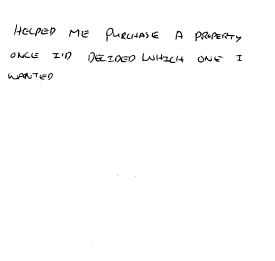 HELPED ME PURCHASE A PROPERTY
ONCE I'D DECIDED WHICH ONE I
WANTED